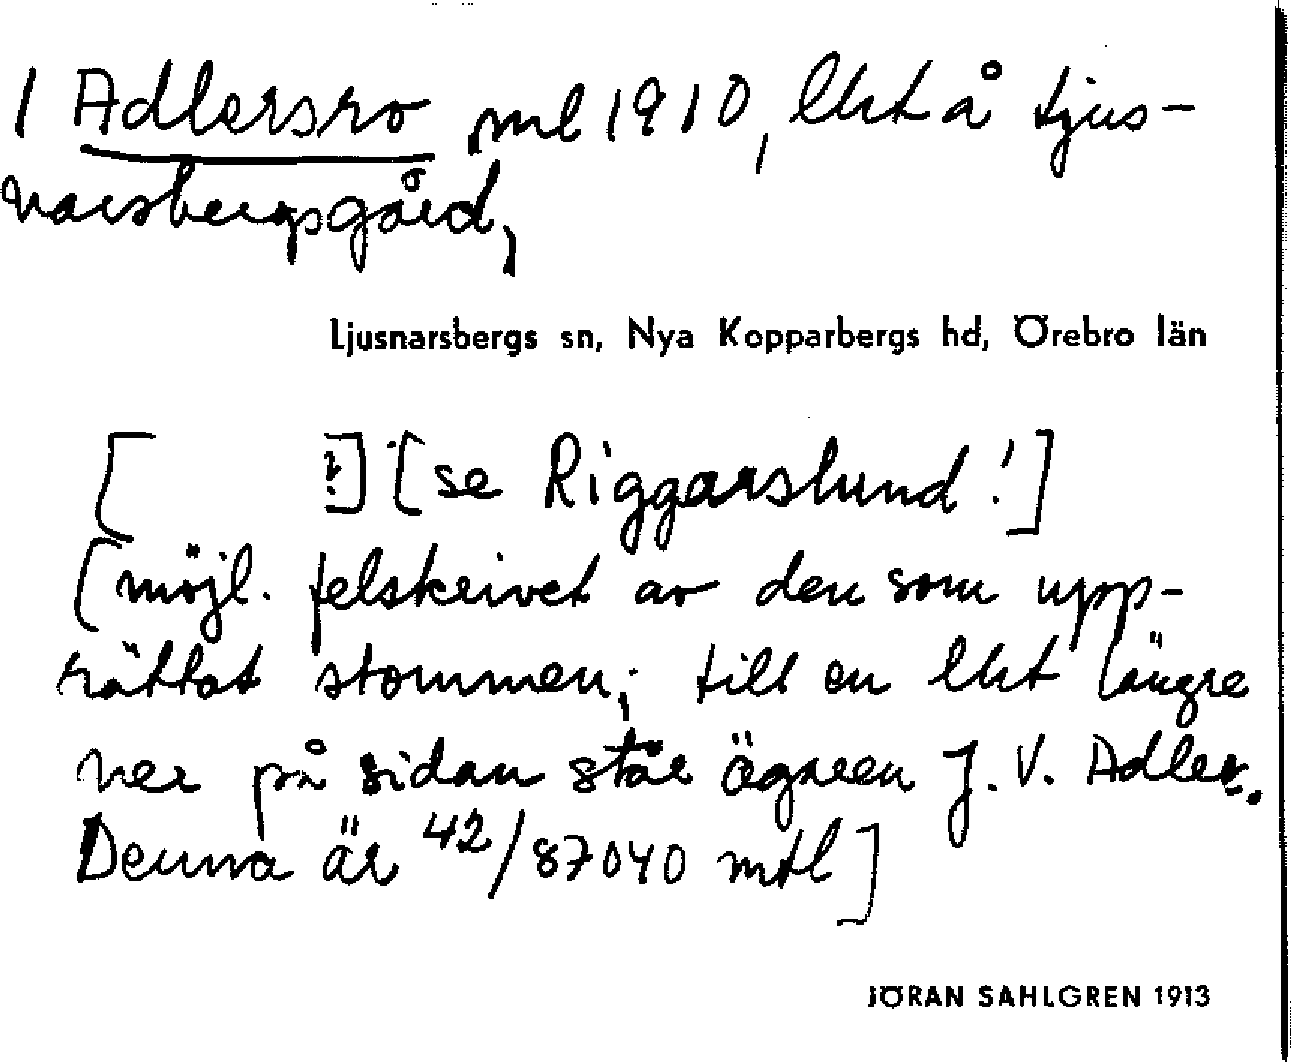 1 Adlersro ml 1910, lht å Ljus-
narsbergsgård,
Ljusnarsbergs sn, Nya Kopparbergs hd, Örebro län
[ ?] [se Riggarslund!]
[möjl. felskrivet av den som upp-
rättat stommen; till en lht längre
ner på sidan står ägaren J. V. Adler.
Denna är 42/87040 mtl]
JÖRAN SAHLGREN 1913